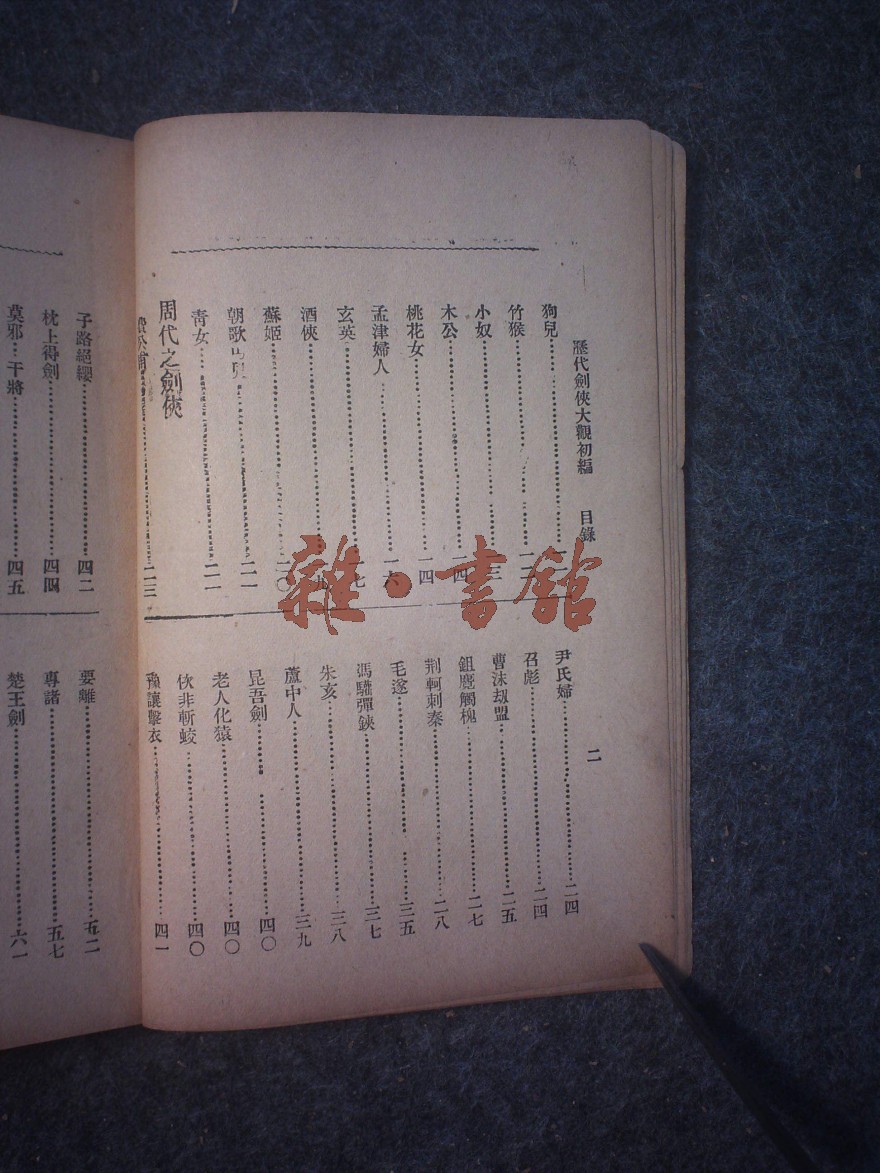 歷代劍俠大觀初編 目錄 二
狗兒
竹猴
小奴
木公
桃花女
孟津婦人
玄英
酒俠
蘇姬 二〇
朝歌
青女 二一
周代之劍俠
二三
尹氏婦 二四
召彪 二四
曹沫刼盟 二五
鉏麑觸槐 二七
荆軻刺秦 二八
毛遂 三五
馮驩彈鋏 三七
朱亥 三八
蘆中人 三九
昆吾劍 四〇
老人化猿 四〇
佽非斬蛟 四〇
豫讓擊衣 四一
子路絕纓 四二
枕上得劍 四四
莫邪 干將 四五
要離 五二
專諸 五七
楚王劍 六一
雜·書館